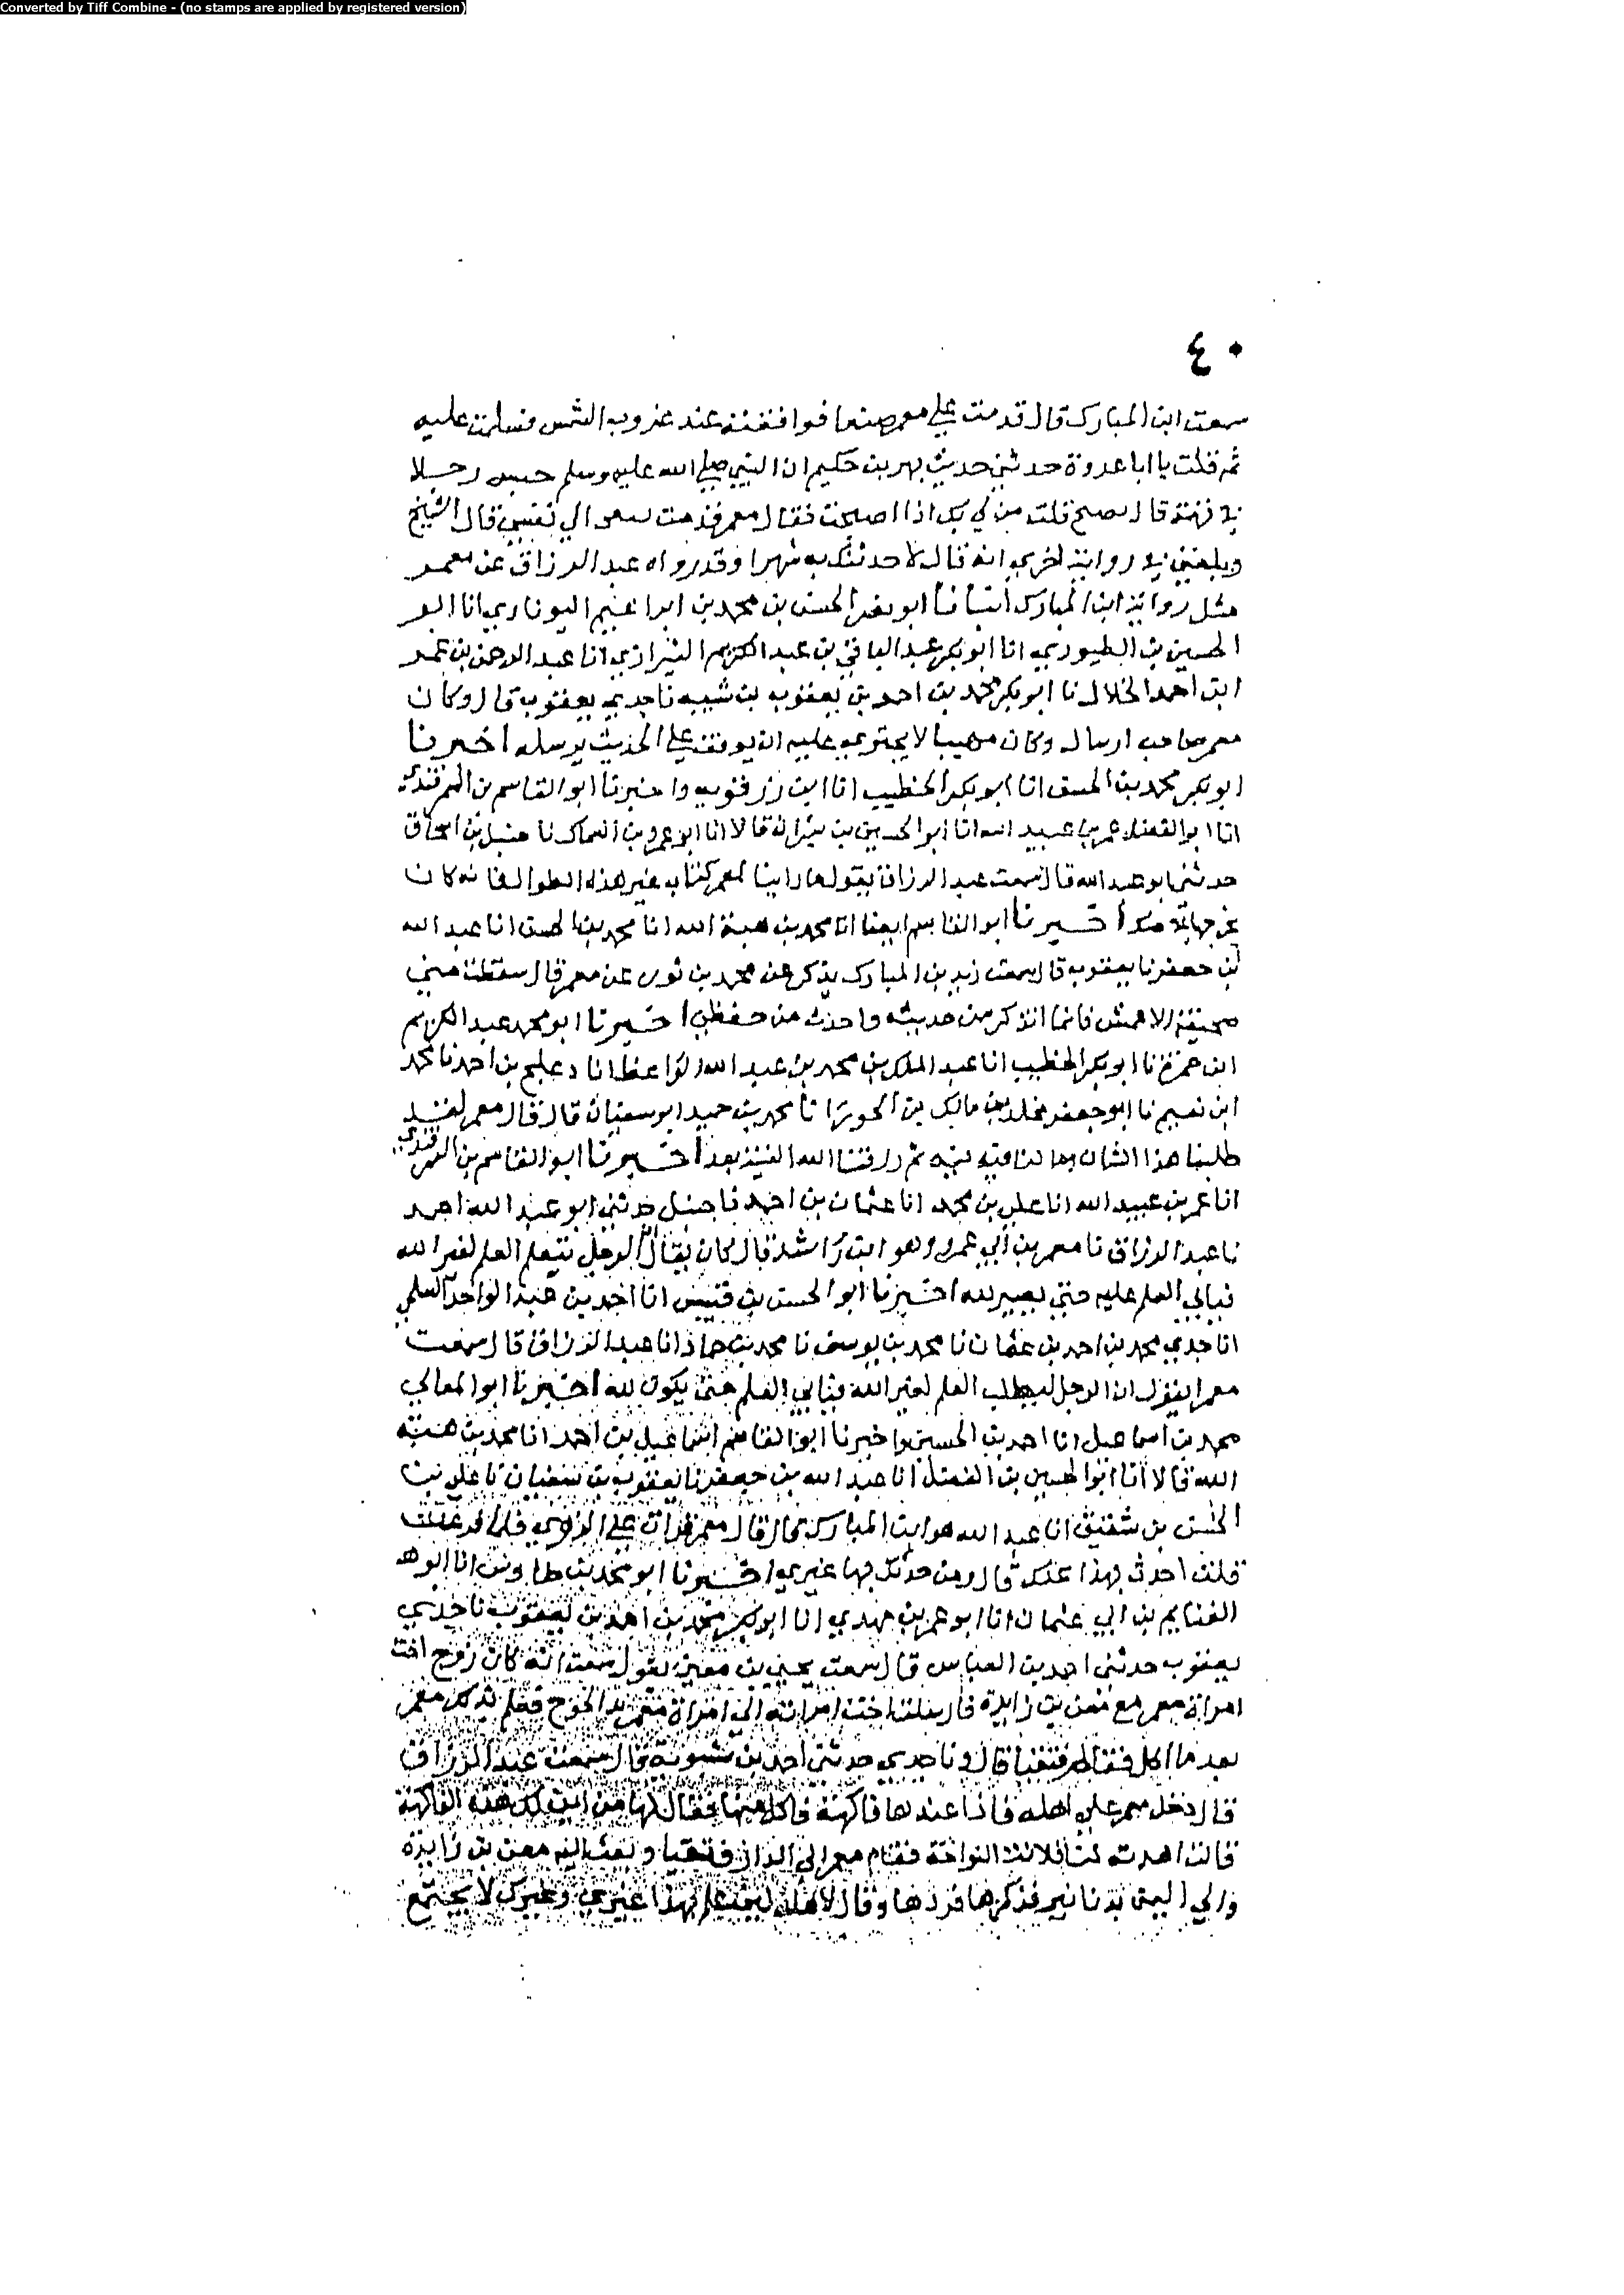 Converted by Tiff Combine - (no stamps are applied by registered version)
٤٠
سمعت ابن المبارك قال قدمت علي معمر صنعا فوافقته عند غروب الشمس فسلمت عليه
ثم قلت يا ابا عروة حدثني حديث بهز بن حكيم ان النبي صلي الله عليه وسلم حبس رجلا
في تهمة قال تصبح قلت من لي بك اذا اصبحت فقال معمر نفسي قال الشيخ
وبلغني في رواية اخري انه قال لا حدثتك به شهرا وقد رواه عبد الرزاق عن معمر
مثل رواية ابن المبارك انبانا ابو نصر الحسن بن محمد بن ابراهيم اليونارتي انا ابو
الحسين بن الطيوري انا ابو بكر عبد الباقي بن عبد الكريم الشيرازي انا عبد الرحمن بن عمر
ابن احمد الخلال نا ابو بكر محمد بن احمد بن يعقوب بن شيبه نا جدي يعقوب قال وكان
معمر صاحب ارسال وكان مهيبا لا يجتري عليه ان يوقف علي الحديث يرسله اخبرنا
ابو بكر محمد بن الحسن انا ابو بكر الخطيب انا ابن رزقويه واخبرنا ابو القاسم بن السمرقندي
انا ابو الفضل عمر بن عبيد الله انا ابو الحسين بن بشران قالا انا ابو عمرو بن السماك نا حنبل بن اسحاق
حدثني ابو عبد الله قال سمعت عبد الرزاق يقول ما راينا لمعمر كتاب غير هذه الطوال فانه كان
اخبرنا ابو القاسم ايضا انا محمد بن هبة الله انا محمد بن الحسن انا عبد الله
بن جعفر نا يعقوب قال سمعت زيد بن المبارك يذكر عن محمد بن ثور عن معمر قال سقطت مني
صحيفة الاعمش فانما اتذكر من حديثه واحدث من حفظي اخبرنا ابو محمد عبد الكريم
ابن حمزة نا ابو بكر الخطيب انا عبد الملك بن محمد بن عبد الله الواعظ انا دعلج بن احمد نا محمد
ابن نعيم نا ابو جعفر مخلد بن مالك نا محمد بن حميد ابو سفيان قال قال معمر لقد
طلبنا هذا الشان وما لنا فيه نيه ثم رزقنا الله النية بعد اخبرنا ابو القاسم بن السمرقندي
انا عمر بن عبيد الله انا علي بن محمد انا عثمان بن احمد نا حنبل حدثني ابو عبد الله احمد
نا عبد الرزاق نا معمر بن ابي عمرو وهو ابن راشد قال كان يقال ان الرجل يتعلم العلم لغير الله
فيابي العلم عليه حتي يصير لله اخبرنا ابو الحسن بن قبيس انا احمد بن عبد الواحد السلمي
انا جدي محمد بن احمد بن عثمان نا محمد بن يوسف نا محمد بن حماد انا عبد الرزاق قال سمعت
معمرا يقول ان الرجل ليطلب العلم لغير الله فيابي العلم حتى يكون لله اخبرنا ابو المعالي
محمد بن اسماعيل انا احمد بن الحسين واخبرنا ابو القاسم اسماعيل بن احمد انا محمد بن هبة
الله قالا انا ابو الحسين بن الفضل انا عبد الله بن جعفر نا يعقوب بن سفيان نا علي بن
الحسن بن شقيق انا عبد الله هو ابن المبارك قال قال معمر قرات علي الزهري فلما فرغت
قلت احدث بهذا عنك قال ومن حدثك بهذا غيري اخبرنا ابو محمد بن طاووس انا ابو
الغنايم بن ابي عثمان انا ابو عمر بن مهدي انا ابو بكر محمد بن احمد بن يعقوب نا جدي
يعقوب حدثني احمد بن العباس قال سمعت يحيي بن معين يقول سمعت انه كان زوج اخت
امراة معمر مع معن بن زايدة فارسلت اختها
بعد ما اكل فقام فتقيا قال ونا جدي حدثني احمد بن شبوية قال سمعت عبد الرزاق
قال دخل معمر علي اهله فاذا عندها فاكهة فاكل منها فقال لها من اين لك هذه الفاكهة
قالت اهدته لنا فلانة النواحة فقام معمر الي الدار فتقيا وبعث اليه معن بن زايدة
والي اليمن بدنانير فذكرها فردها وقال لاهله لين علم بهذا غيري وغيرك لا يجتمع